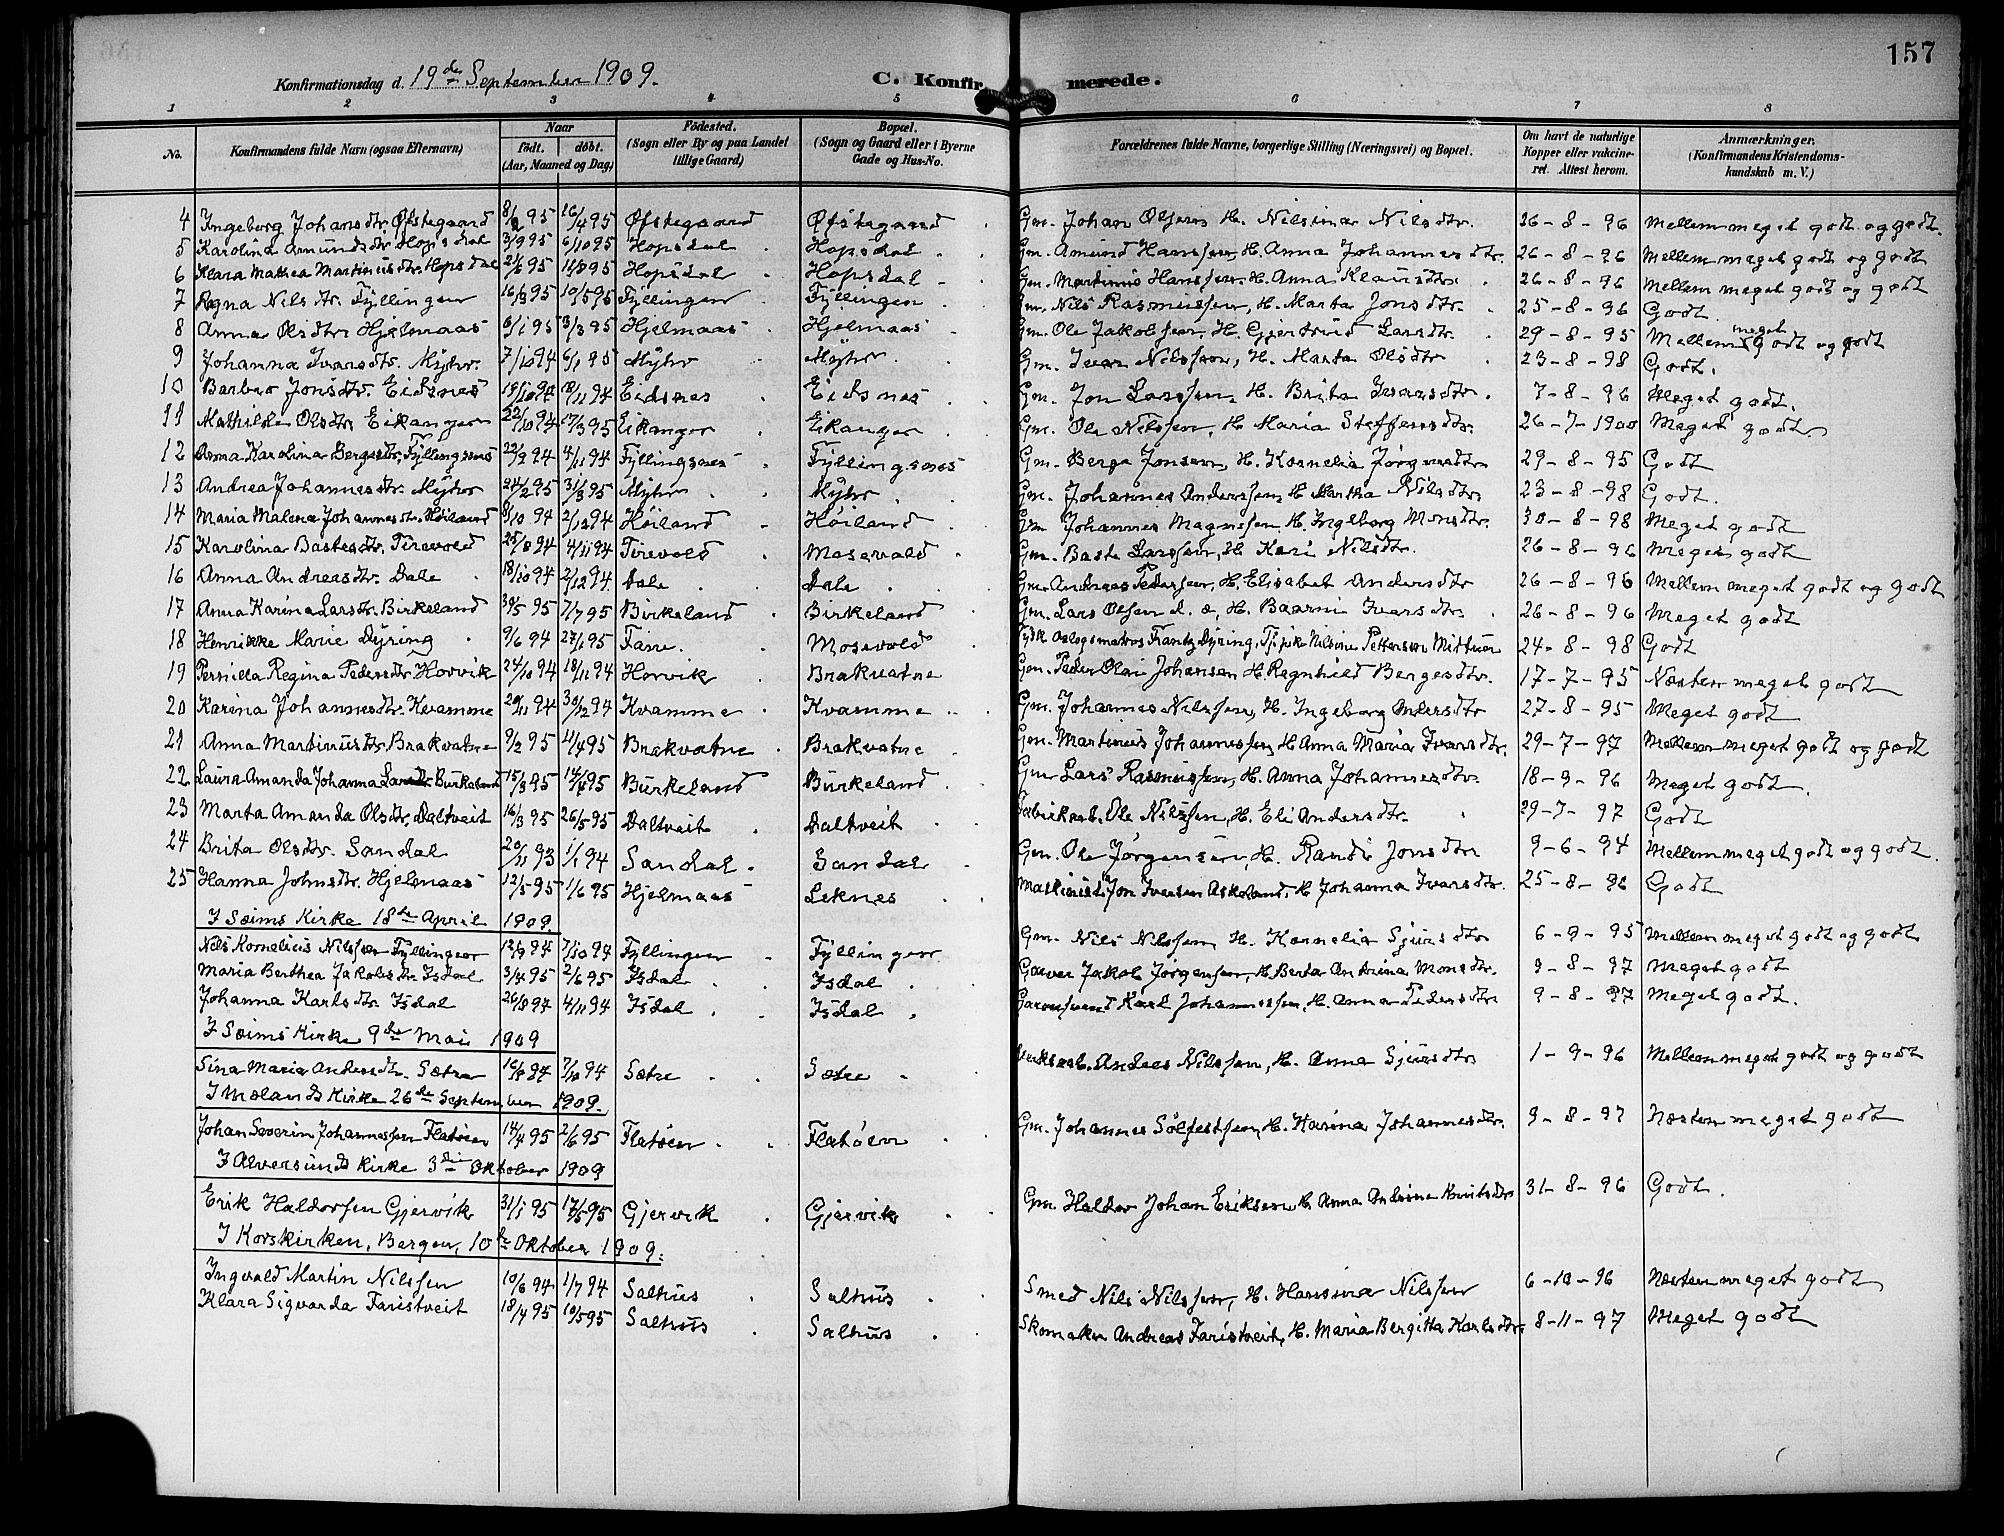 157
Konfirmationsdag d. 19de September 1909. C. Konfirmerede.
1 2 3 4 5 6 7 8
No. Konfirmandens fulde Navn (ogsaa Efternavn) Naar født. døbt. (Aar, Maaned og Dag) Fødested. (Sogn eller By og paa Landet tillige Gaard) Bopæl. (Sogn og Gaard eller i Byerne Gade og Hus-No. Forældrenes fulde Navne, borgerlige Stilling (Næringsvei) og Bopæl. Om havt de naturlige Kopper eller vakcineret. Attest herom. Anmærkninger. (Konfirmandens Kristendomskundskab m. V.)
4 Ingeborg Johansdtr. Øfstegaard 16/4 95 Øfstegaard Øfstegaard Gm. Johan Olsen H. Nilsina Nilsdtr. 26-8-96 Mellem meget godt og godt.
5 Karolina Amundsdtr. Hopsdal 3/9 95 6/10 95 Hopsdal Hopsdal Gm. Amund Hanssen, H. Anna Johannesdtr. 26-8-96 Mellem meget godt og godt
6 Klara Mathea Martinusdtr. Hopsdal 11/8 95 Hopsdal Hopsdal Gm. Martinus Hanssen H. Anna Klausdtr. 26-8-96 Mellem meget godt og godt
7 Agna Nilsdtr. Fyllingen 16/3 95 10/5 95 Fyllingen Fyllingen Gm. Nils Rasmussen, H. Marta Jonsdtr. 25-8-96 Godt.
8 Anna Olsdtr. Hjelmaas 6/1 95 3/3 95 Hjelmaas Hjelmaas Gm. Ole Jakobsen, H. Gjertrud Larsdtr. 29-8-95 Mellem meget godt og godt
9 Johanna Ivarsdtr. Myhr. 7/10 94 6/1 95 Myhr Myhr Gm. Ivar Nilssen, H. Marta Olsdtr 23-8-98 Godt.
10 Barbro Jonsdtr. Eidsnes 19/10 94 18/11 94 Eidsnes Eidsnes Gm. Jon Larssen, H. Brita Ivarsdtr. 7-8-96 Meget godt.
11 Mathilde Olsdtr. Eikanger 22/10 94 17/3 95 Eikanger Eikanger Gm. Ole Nilssen, H. Maria Steffensdtr. 26-7-1900 Meget godt.
12 Anna Karolina Bergesdtr. Fyllingsnes 22/9 94 4/11 94 Fyllingsnes Fyllingsnes Gm. Berge Jonsen, H. Kornelia Jørgensdtr 29-8-95 Godt
13 Andrea Johannesdtr. Myhr 24/2 95 31/3 95 Myhr Myhr Gm. Johannes Anderssen, H. Martha Nilsdtr. 23-8-98 Godt.
14 Maria Malena Johannesdtr. Høiland 8/10 94 2/12 94 Høiland Høiland Gm. Johannes Magnesen H. Ingeborg Monsdtr. 30-8-98 Meget godt
15 Karolina Bastesdtr. Tirevold 25/8 94 4/11 94 Tirevold Mosevold Gm. Baste Larssen, H. Kari Nilsdtr. 26-8-96 Meget godt
16 Anna Andreasdtr. Dale 18/10 94 2/12 94. Dale Dale Gm. Andreas Pederssen, H. Elisabet Andersdtr 26-8-96 Mellem meget godt og godt
17 Anna Karina Larsdtr. Birkeland 30/5 95 7/7 95 Birkeland Birkeland Gm. Lars Olsen d. æ, H. Baarni Ivarsdtr. 26-8-96 Meget godt
18 Henrikke Marie Dyring 9/6 94 27/1 95 Mosevold Frantz Dyring, Nilsine Pettersen 24-8-98 Godt
19 Pernilla Regina Pedersdtr. Horvik 24/10 94 18/11 94 Horvik Brakvatne Gm. Peder Olai Johansen H. Ragnhild Bergesdtr. 17-7-95 Næsten meget godt
20 Karina Johannesdtr. Kvamme 20/11 94 30/12 94 Kvamme Kvamme Gm. Johannes Nilssen, H. Ingeborg Andersdtr 27-8-95 Meget godt
21 Anna Martinusdtr. Brakvatne 9/2 95 4/4 95 Brakvatne Brakvatne Gm. Martinus Johannessen, H. Anna Maria Ivarsdtr. 29-7-97 Mellem meget godt og godt
22 Laura Amanda Johanna Larsdtr. Burkeland 15/3 95 Burkeland Burkeland Gm. Lars Rasmussen, H. Anna Johannesdtr. 18-9-96 Meget godt.
23 Marta Amanda Olsdtr. Daltveit 16/3 95 26/5 95 Daltveit Daltveit Fabrikarb. Ole Nilssen, H. Eli Andersdtr. 29-7-97 Godt
24 Brita Olsdtr. Sandal 20/11 93 1/1 94 Sandal Sandal Gm. Ole Jørgensen, H. Randi Jonsdtr 9-6-94 Mellem meget godt og godt.
25 Hanna Johnsdtr. Hjelmaas 12/5 95 1/6 95 Hjelmaas Leknes Maskinist Jon Iversen Askeland, H. Johanna Ivarsdtr. 25-8-96 Godt
I Sæims Kirke 18de April 1909
Nils Kornelius Nilssen Fyllingen 12/9 94 7/10 94 Fyllingen Fyllingen Gm. Nils Nilssen, H. Kornelia Sjursdtr 6-9-95 Mellem meget godt og godt
Maria Berthea Jakobsdtr. Isdal 3/4 95 2/6 95 Isdal Isdal Garver Jakob Jørgensen, H. Berta Antrina Monsdtr. 9-8-97 Meget godt
Johanna Karlsdtr. Isdal 26/8 94 4/11 94 Isdal Isdal Garversvend Karl Johannessen, H. Anna Pedersdtr 9-8-97 Meget godt.
I Sæims Kirke 9de Mai 1909
Sina Maria Andersdtr. Sætre 7/10 94 Sætre Sætre Anders Nilssen, H. Anna Sjursdtr 1-9-96 Mellem meget godt og godt
I Molands Kirke 26de September 1909.
Johan Severin Johannessen Flatøen 14/4 95 2/6 95 Flatøen Flatøen Gm. Johannes Solfestsen, H. Karina Johannesdtr. 9-8-97 Næsten meget godt
I Alversunds Kirke 3die Oktober 1909
Erik Haldorsen Gjervik 31/1 95 17/5 95 Gjervik Gjervik Gm. Haldor Johan Eriksen H. Anna Andrine Knutsdtr 31-8-96 Godt.
I Korskirken, Bergen, 10de Oktober 1909.
Ingvald Martin Nilssen 10/6 94 1/7 94 Salhus Salhus Smed Nils Nilssen, H. Hansina Nilssen 6-10-96 Næsten meget godt
Klara Sigvarda Faristveit 18/4 95 10/5 95 Salhus Salhus Skomaker Andreas Faristveit, H. Maria Bergitta Karlsdtr. 8-11-97 Meget godt